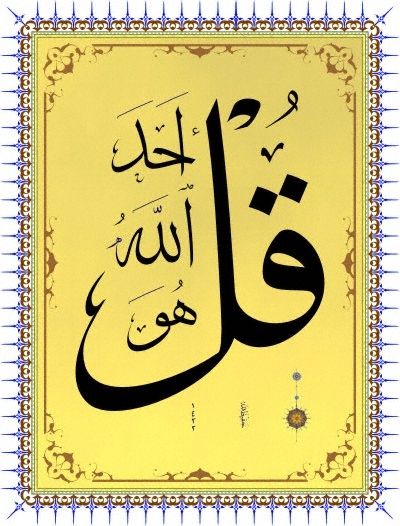 قُلْ
هُوَ
ٱللَّهُ
أَحَدٌ
١٤٢٢